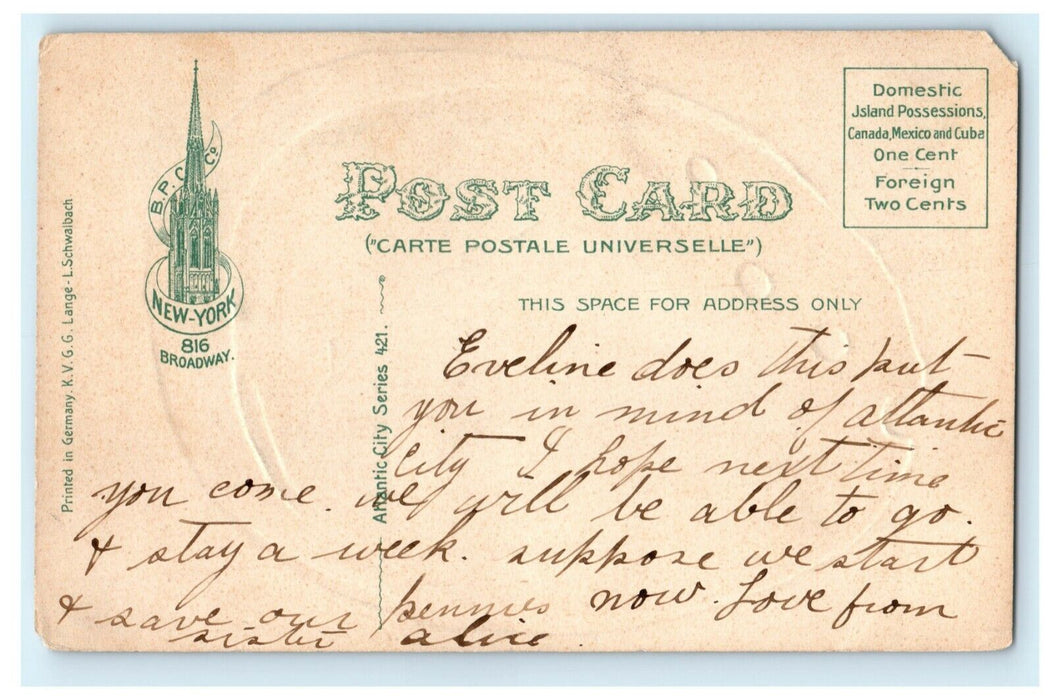 B. P. C. Co.
NEW-YORK
816
BROADWAY.
Printed in Germany. K. V. G. G. Lange - L. Schwalbach
POST CARD
("CARTE POSTALE UNIVERSELLE")
Domestic
Island Possessions,
Canada, Mexico and Cuba
One Cent
Foreign
Two Cents
THIS SPACE FOR ADDRESS ONLY
Atlantic City Series 421.
Eveline does this put
you in mind of atlantic
City I hope next time
you come. we will be able to go.
& stay a week. suppose we start
& save our pennies now. Love from
sister alice.